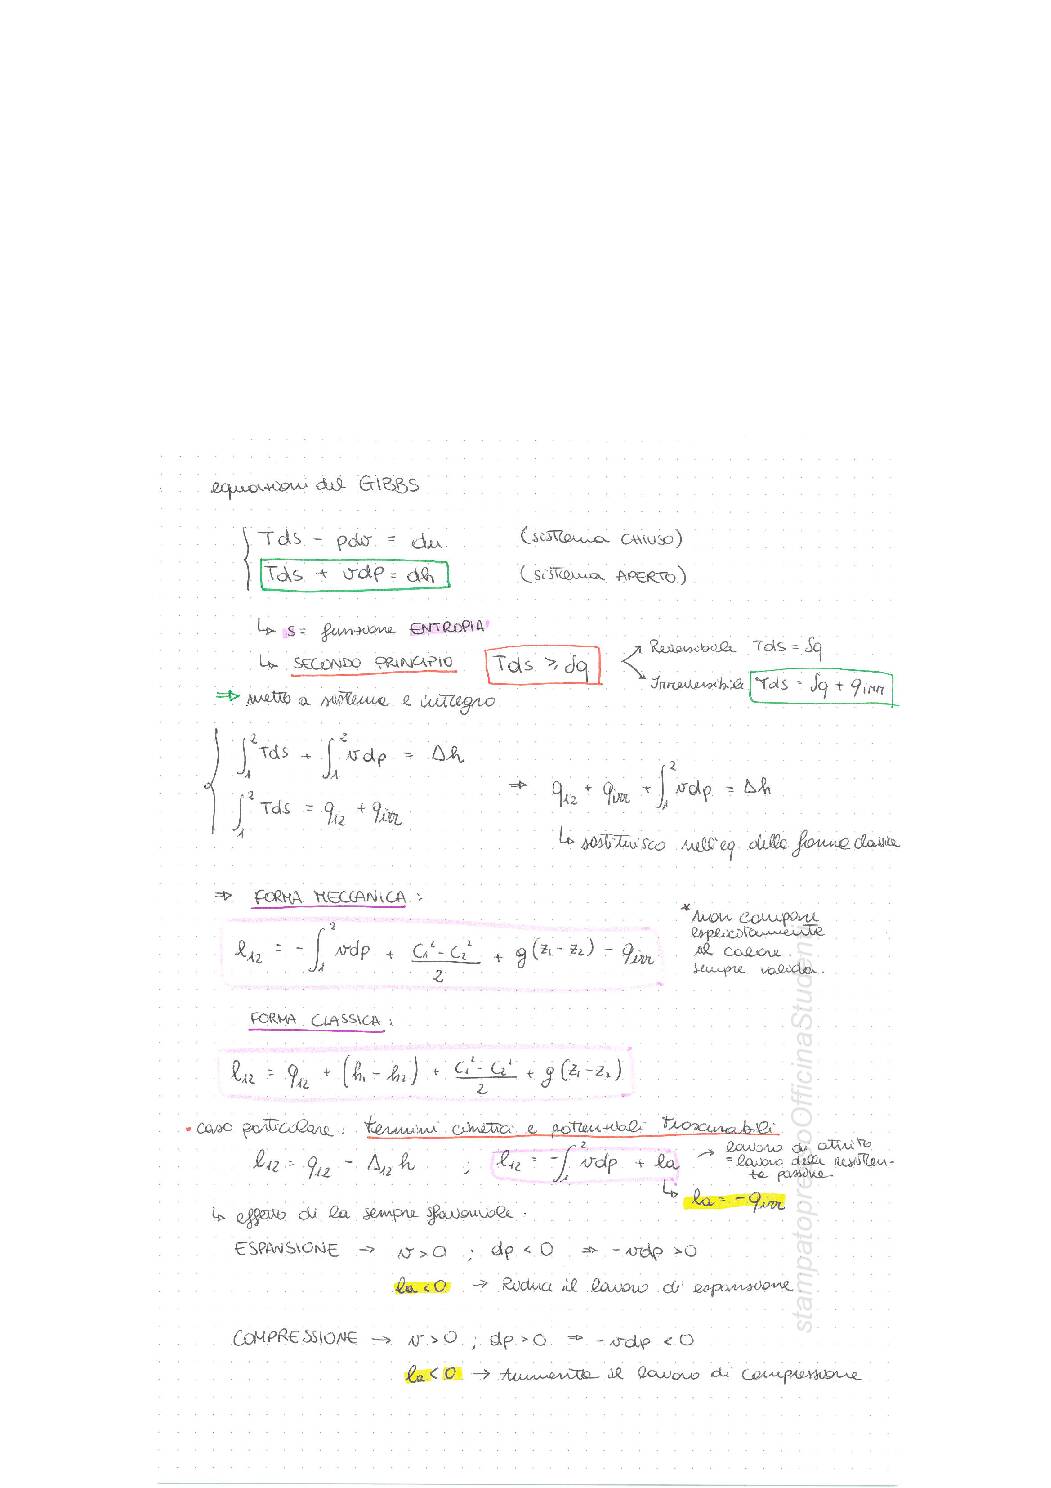 equazioni del GIBBS
Tds - pdv = du (sistema CHIUSO)
Tds + vdp = dh (sistema APERTO)
↳ s = funzione ENTROPIA
↳ SECONDO PRINCIPIO Tds ≥ δq
Reversibile Tds = δq
Irreversibile Tds = δq + qirr
⇒ metto a sistema e integro
∫₁² Tds + ∫₁² vdp = Δh
∫₁² Tds = q₁₂ + qirr
⇒ q₁₂ + qirr + ∫₁² vdp = Δh
↳ sostituisco nell'eq. della forma classica
⇒ FORMA MECCANICA :
l₁₂ = - ∫₁² vdp + (c₁² - c₂²)/2 + g(z₁ - z₂) - qirr
* non compare
esplicitamente
il calore
sempre valida.
FORMA CLASSICA :
l₁₂ = q₁₂ + (h₁ - h₂) + (c₁² - c₂²)/2 + g(z₁ - z₂)
• caso particolare : termini cinetici e potenziali trascurabili
l₁₂ = q₁₂ - Δ₁₂h ; l₁₂ = -∫₁² vdp + la
→ lavoro di attrito
= lavoro delle resisten-
te passive
↳ la = -qirr
↳ effetto di la sempre sfavorevole.
ESPANSIONE → v>0 ; dp<0 ⇒ -vdp>0
la<0 → Riduce il lavoro di espansione
COMPRESSIONE → v>0 ; dp>0 ⇒ -vdp<0
la<0 → Aumenta il lavoro di compressione
stampatopressoOfficinaStudenti